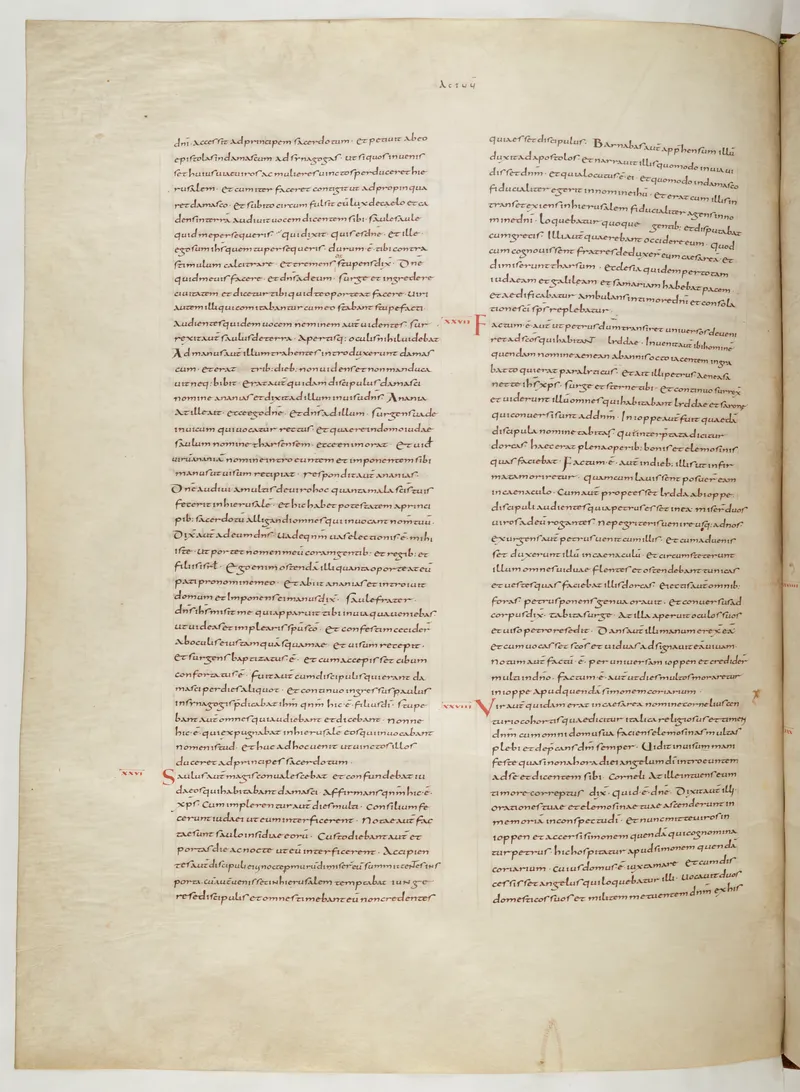 Actuū
dnī. accessit ad principem sacerdotum. et petiuit ab eo
epistolas indamascum adsynagogas. ut siquos inuenis
set huius uiae uiros ac mulieres uinctos perduceret hie
rusalem. et cum iter faceret contigit ut adpropinqua
ret damasco. et subito circum fulsit eū lux decaelo et ca
dens interrā audiuit uocem dicentem sibi. saule saule
quid me persequeris. qui dixit. quis es dne. et ille.
ego sum ihs quem tu persequeris. durum ē. tibi contra
stimulum calcitrare. et tremens stupens dix. Dne
quid me uis facere. et dns adeum. surge et ingredere
ciuitatem et dicetur tibi quid te oporteat facere. Uiri
autem illi qui comitabantur cum eo stabant stupefacti
audientes quidem uocem neminem aut uidentes. sur
rexit aut saulus deterra. apertisq; oculis nihil uidebat
Ad manus aut illum trahentes introduxerunt damas
cum. et erat trib; dieb; non uidens et non manduca
uit neq; bibit. Erat aut quidam discipulus damasci
nomine ananias et dixit ad illum in uisu dns. Anania
At ille ait. ecce ego dne. et dns ad illum. surgens uade
inuicum qui uocatur rectus. et quaere indomo iudae
saulum nomine tharsensem. ecce enim orat. et uid
uirū ananiā nomine intro euntem et imponentem sibi
manus ut uisum recipiat. respondit aut ananias.
Dne audiui a multis de uiro hoc quanta mala scis tuis
fecerit inhierusale. et hic habet potestatem a princi
pib; sacerdotū alligandi omnes qui inuocant nom tuū.
Dix aut ad eum dns. Uade qnm uas electionis ē. mihi
iste. ut portet nomen meū coram gentib; et regib; et
filiis isrl. Ego enim ostendā illi quanta oporteat eū
pati pro nomine meo. et abiit ananias et introiuit
domum et imponens ei manus dix. saule frater
dns ihs misit me qui apparuit tibi in uia qua ueniebas
ut uideas et implearis spu sco. et confestim cecider
ab oculis eius tamquā squamae. et uisum recepit.
et surgens baptizatus ē. et cum accepisset cibum
confortatus ē. fuit aut cum discipulis qui erant da
masci per dies aliquot. et continuo ingressus paulus
insynagogis pdicabat ihm qnm hic ē. filius di. stupe
bant aut omnes qui audiebant et dicebant. nonne
hic ē. qui expugnabat inhierusale eos qui inuocabant
nomen istud. et huc ad hoc uenit ut uinctos illos
duceret ad principes sacerdotum.
XXVI Saulus aut magis conualescebat et confundebat iu
daeos qui habitabant damasci. affirmans qnm hic ē.
xps. Cum implerentur aut dies multi. Consilium fe
cerunt iudaei ut eum interficerent. Notae aut fac
tae sunt saulo insidiae eorū. Custodiebant aut et
portas die ac nocte ut eū interficerent. accipien
tes aut discipuli eius nocte p murū dimiser eū summittentes in s
porta. cū aut uenisset inhierusalem temptabat iunge
re se discipulis et omnes timebant eū non credentes
quia esset discipulus. Barnabas aut apphensum illū
duxit ad apostolos et narrauit illis quomodo in uia ui
disset dnm. et quia locutus ē ei. et quomodo indamasco
fiducialiter egerit in nomine ihu. et erat cum illis in
trans et exiens inhierusalem fiducialiter agens in no
mine dni. Loquebatur quoque gentib; et disputabat
cum grecis. Illi aut quaerebant occidere eum. quod
cum cognouissent fratres deduxer eum caesarea et
dimiserunt tharsum. Ecclesia quidem per totam
iudaeam et galileam et samariam habebat pacem
et aedificabatur ambulans in timore dni et consola
tione sci sps replebatur.
XXVII Factum ē aut ut petrus dum transiret uniuersos deueni
ret ad scos qui habitant lyddae. Inuenit aut ibi hominē
quendam nomine aenean ab annis octo iacentem ingra
batto qui erat paralyticus. et ait illi petrus aenea sa
net te ihs xps. surge et sterne tibi. et continuo surrex
et uiderunt illū omnes qui habitabant lyddae et sarone
qui conuersi sunt ad dnm. In ioppe aut fuit quaedā
discipula nomine tabitas quintepretata dicitur
dorcas haec erat plena operib; bonis et elemosinis
quas faciebat. Factum ē. aut in dieb; illis ut infir
mata moriretur. quam cum lauissent posuer eam
in caenaculo. Cum aut prope esset lydda ab ioppe.
discipuli audientes quia petrus esset in ea miser duos
uiros ad eū rogantes. ne pegriteris uenire usq; ad nos
exurgens aut petrus uenit cum illis. et cum aduenis
set duxerunt illū in caenaculū. et circumsteterunt
illum omnes uiduae flentes et ostendebant tunicas
et uestes quas faciebat illis dorcas. eiectis aut omnib;
foras petrus ponens genua orauit. et conuersus ad
corpus dix. tabita surge. at illa aperuit oculos suos
et uiso petro resedit. Dans aut illi manum erex eā.
et cum uocasset scos et uiduas adsignauit ea uiuam.
notum aut factū ē. per uniuersam ioppen et credider
multi in dno. factum ē. aut ut dies multos moraretur
in ioppe apud quendā simonem coriarium.
XXVIII Vir aut quidam erat in caesarea nomine cornelius cen
turio cohortis quae dicitur italica religiosus et timens
dnm cum omni domu sua faciens elemosinas multas
plebi et depcans dm semper. Uidit in uisu mani
feste quasi nona hora diei angelum di introeuntem
ad se et dicentem sibi. Corneli. At ille intuens eum
timore correptus dix. quid ē. dne. Dixit aut illi
orationes tuae et elemosinae tuae ascenderunt in
memoriā in conspectu di. et nunc mitte uiros in
ioppen et accersi simonem quendā qui cognomina
tur petrus hic hospitatur apud simonem quendā
coriarium. cuius domus ē. iuxta mare. et cum dis
cessisset angelus qui loquebatur illi. Uocauit duos
domesticos suos et militem metuentem dnm ex his